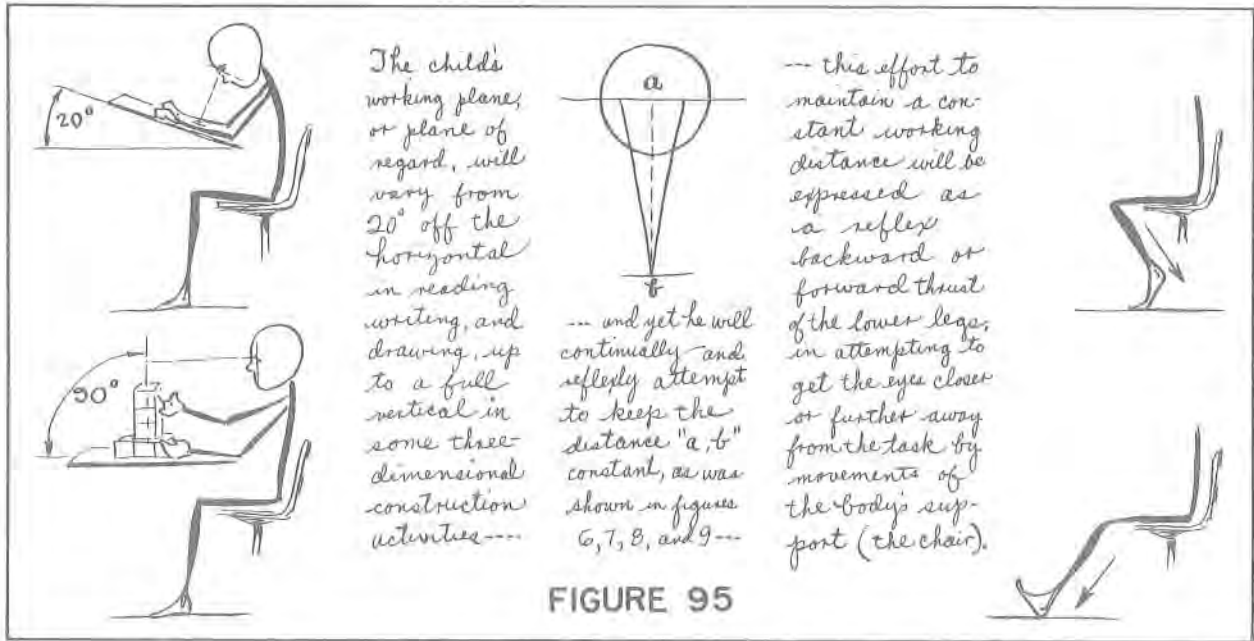 20°
90°
The child's
working plane,
or plane of
regard, will
vary from
20° off the
horizontal
in reading
writing, and
drawing, up
to a full
vertical in
some three-
dimensional
construction
activities----
a
b
--- and yet he will
continually and
reflexly attempt
to keep the
distance "a, b"
constant, as was
shown in figures
6, 7, 8, and 9---
---- this effort to
maintain a con-
stant working
distance will be
expressed as
a reflex
backward or
forward thrust
of the lower legs,
in attempting to
get the eyes closer
or further away
from the task by
movements of
the body's sup-
port (the chair).
FIGURE 95